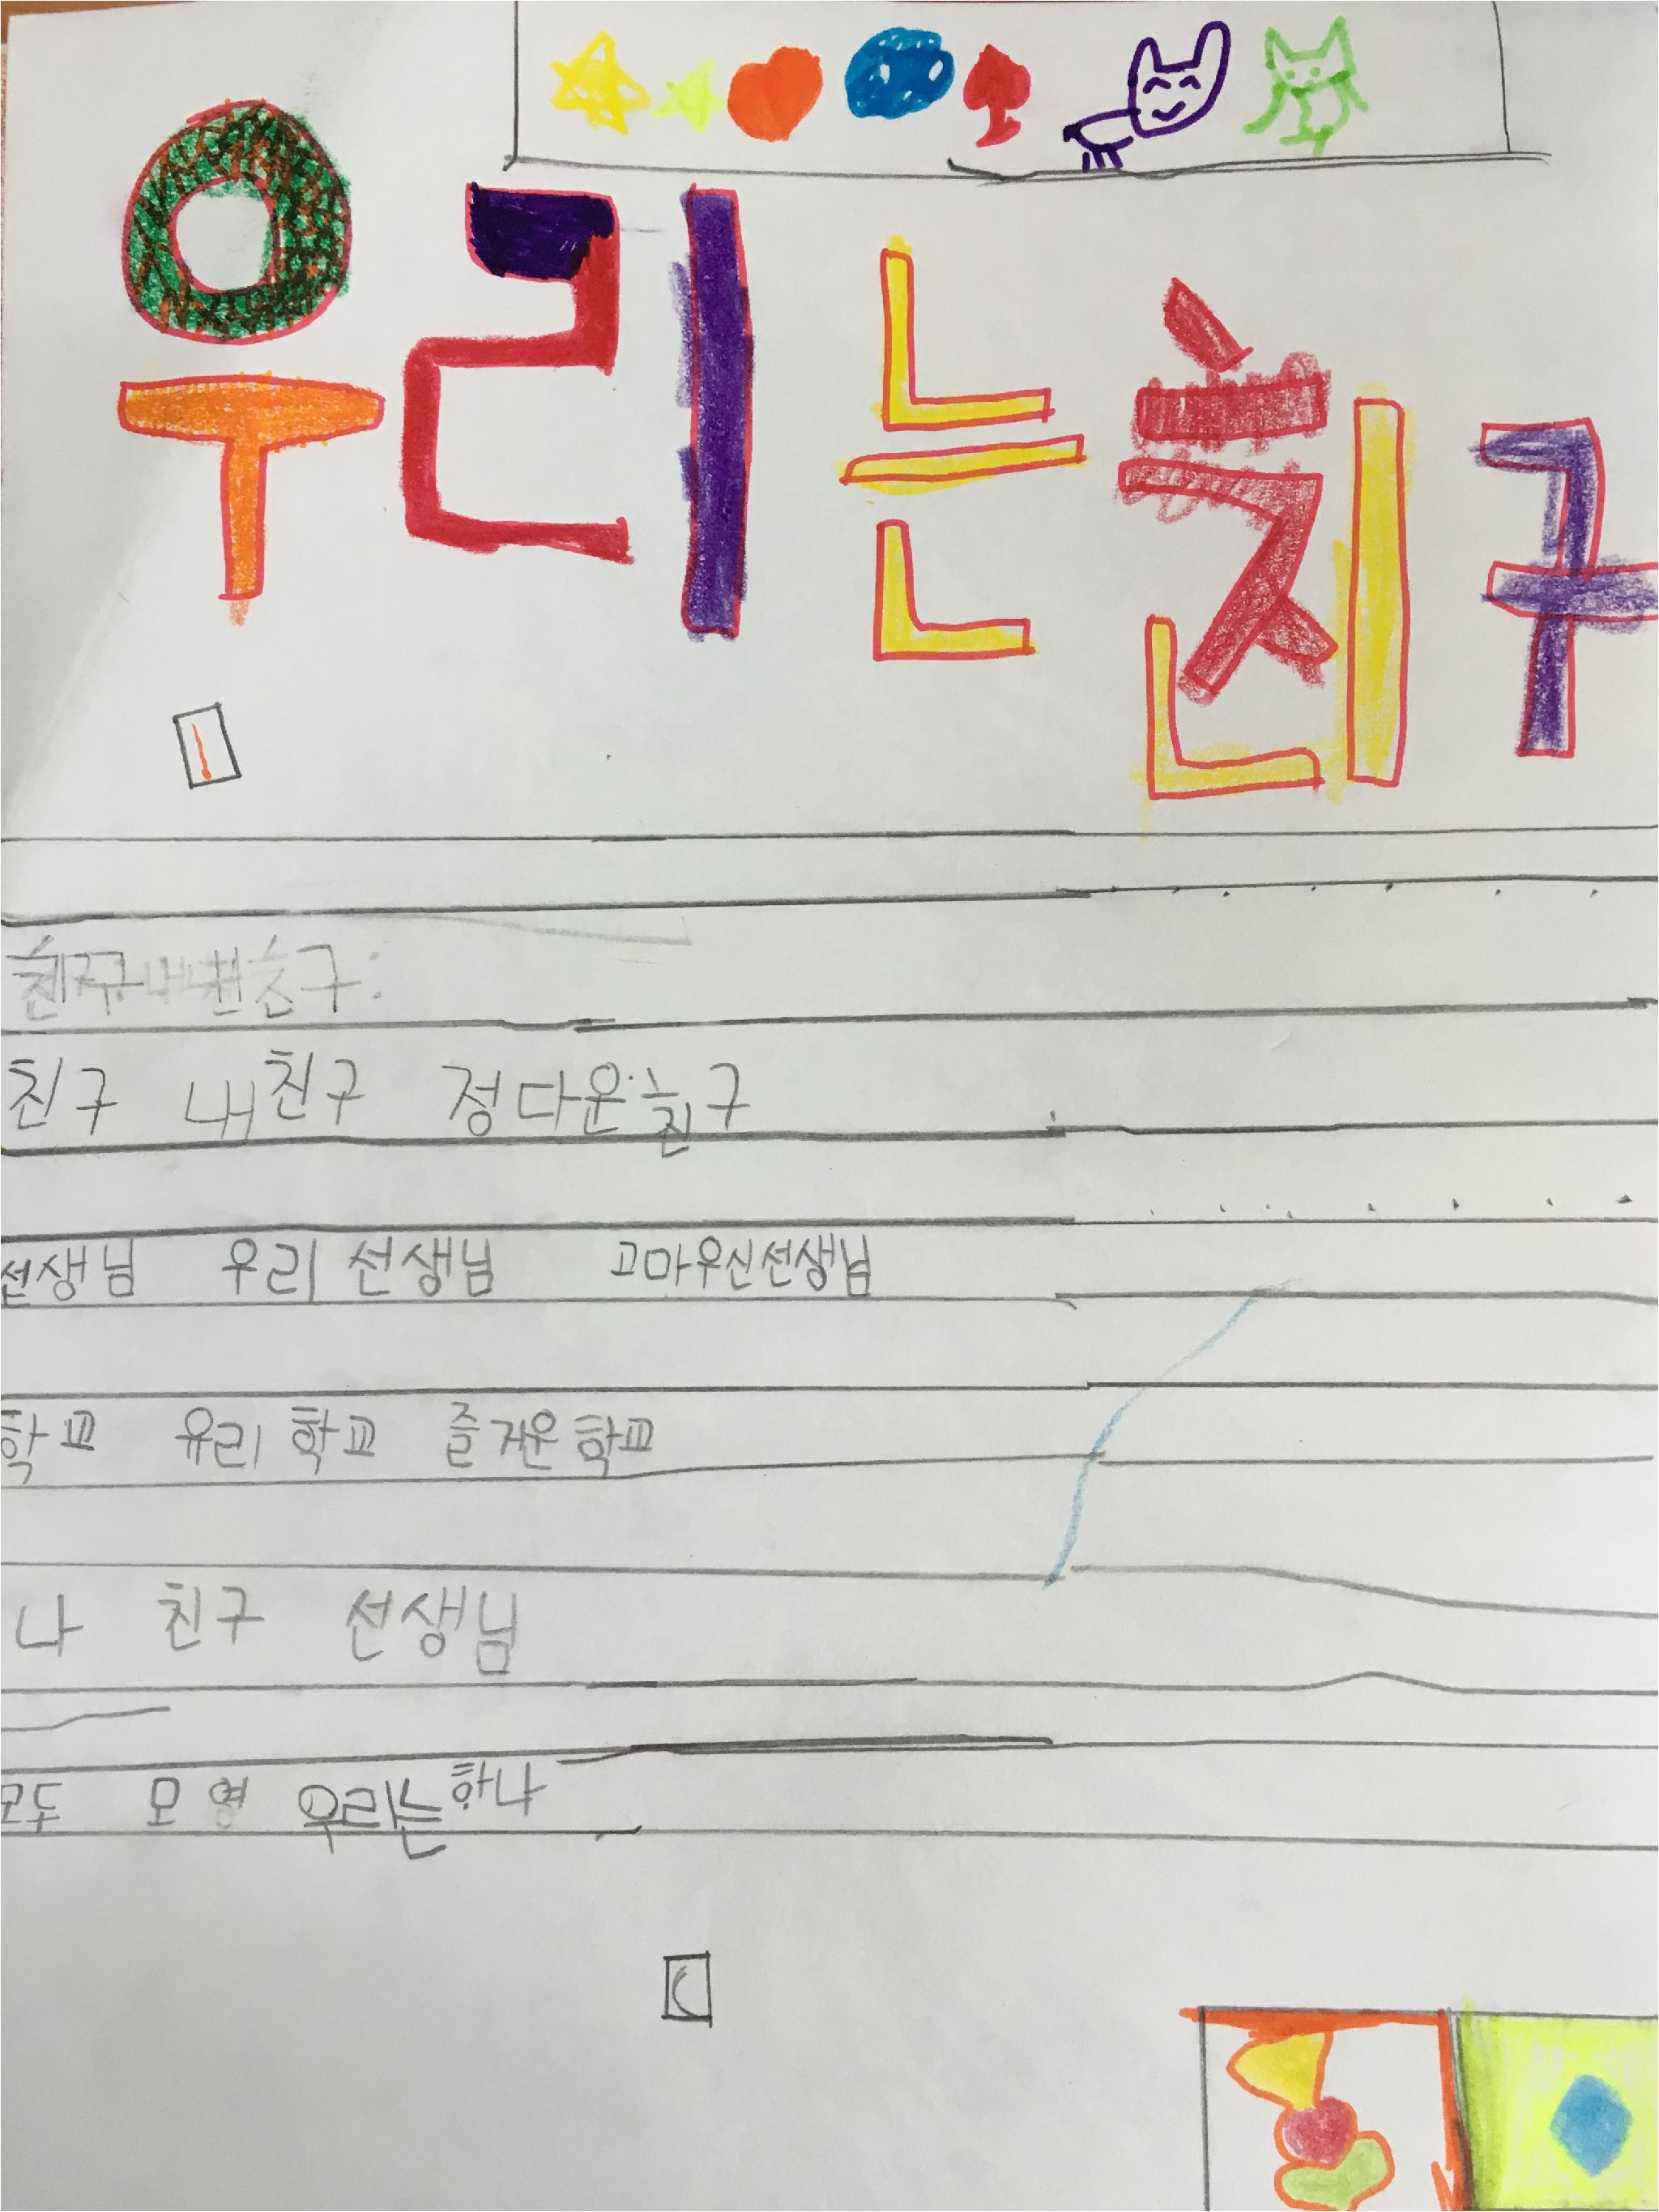 우리는친구
친구 내친구 정다운친구
선생님 우리 선생님 고마우신선생님
학교 유리 학교 즐거운학교
나 친구 선생님
모두 모영 우리는하나